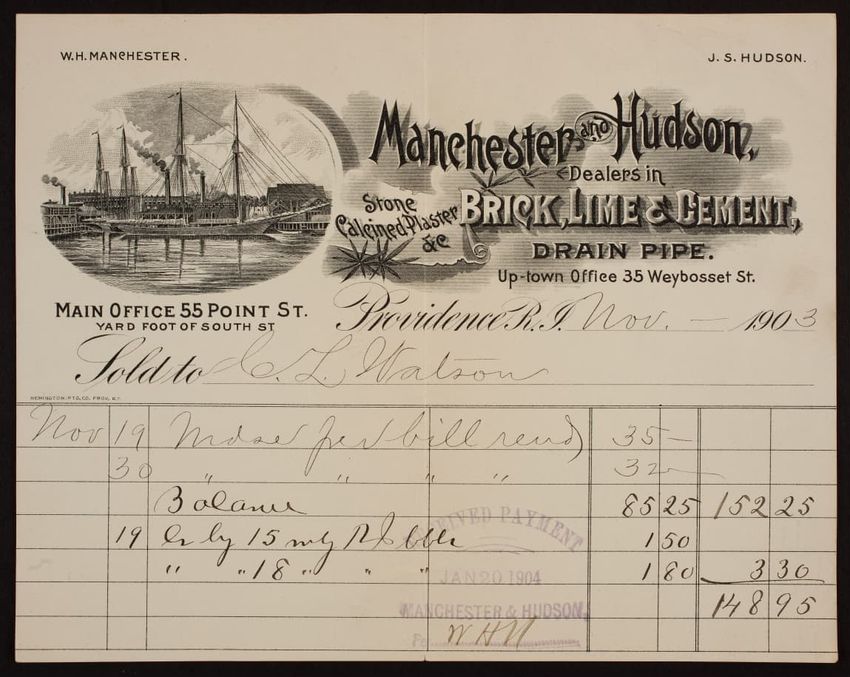 W.H. MANCHESTER.
J. S. HUDSON.
Manchester and Hudson,
Dealers in
Stone
Calcined Plaster
&c
BRICK, LIME & CEMENT,
DRAIN PIPE.
Up-town Office 35 Weybosset St.
MAIN OFFICE 55 POINT ST.
YARD FOOT OF SOUTH ST
Providence R.I. Nov. — 1903
Sold to C. L. Watson
REMINGTON PTG. CO. PROV. R.I.
Nov 19 Mdse per bill rend 35 –
30 " " " " 32 –
Balance 85 25 152 25
19 Cr by 15 mty 1 50
" " 18 " " " 1 80 3 30
148 95
RECEIVED PAYMENT
JAN 20 1904
MANCHESTER & HUDSON,
Per